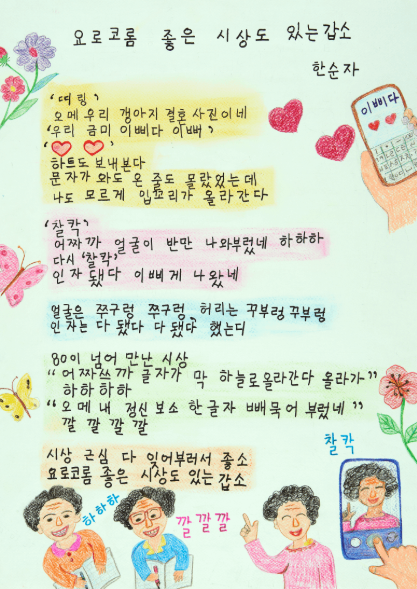 요로코롬 좋은 시상도 있는갑소
한순자
이삐다
'띠링'
오메 우리 갱아지 결혼 사진이네
'우리 금미 이삐다 이뻐'
'♥ ♥'
하트도 보내본다
문자가 와도 온 줄도 몰랐었는데
나도 모르게 입꼬리가 올라간다
'찰칵'
어짜까 얼굴이 반만 나와부렀네 하하하
다시 '찰칵'
인자 됐다 이삐게 나왔네
얼굴은 쭈구렁 쭈구렁, 허리는 꾸부렁 꾸부렁
인자는 다 됐다 다 됐다 했는디
80이 넘어 만난 시상
"어짜쓰까 글자가 막 하늘로 올라간다 올라가"
하하하하
"오메 내 정신 보소 한글자 빼묵어 부렀네"
깔 깔 깔 깔
시상 근심 다 잊어부러서 좋소
요로코롬 좋은 시상도 있는갑소
찰칵
하하하
깔깔깔